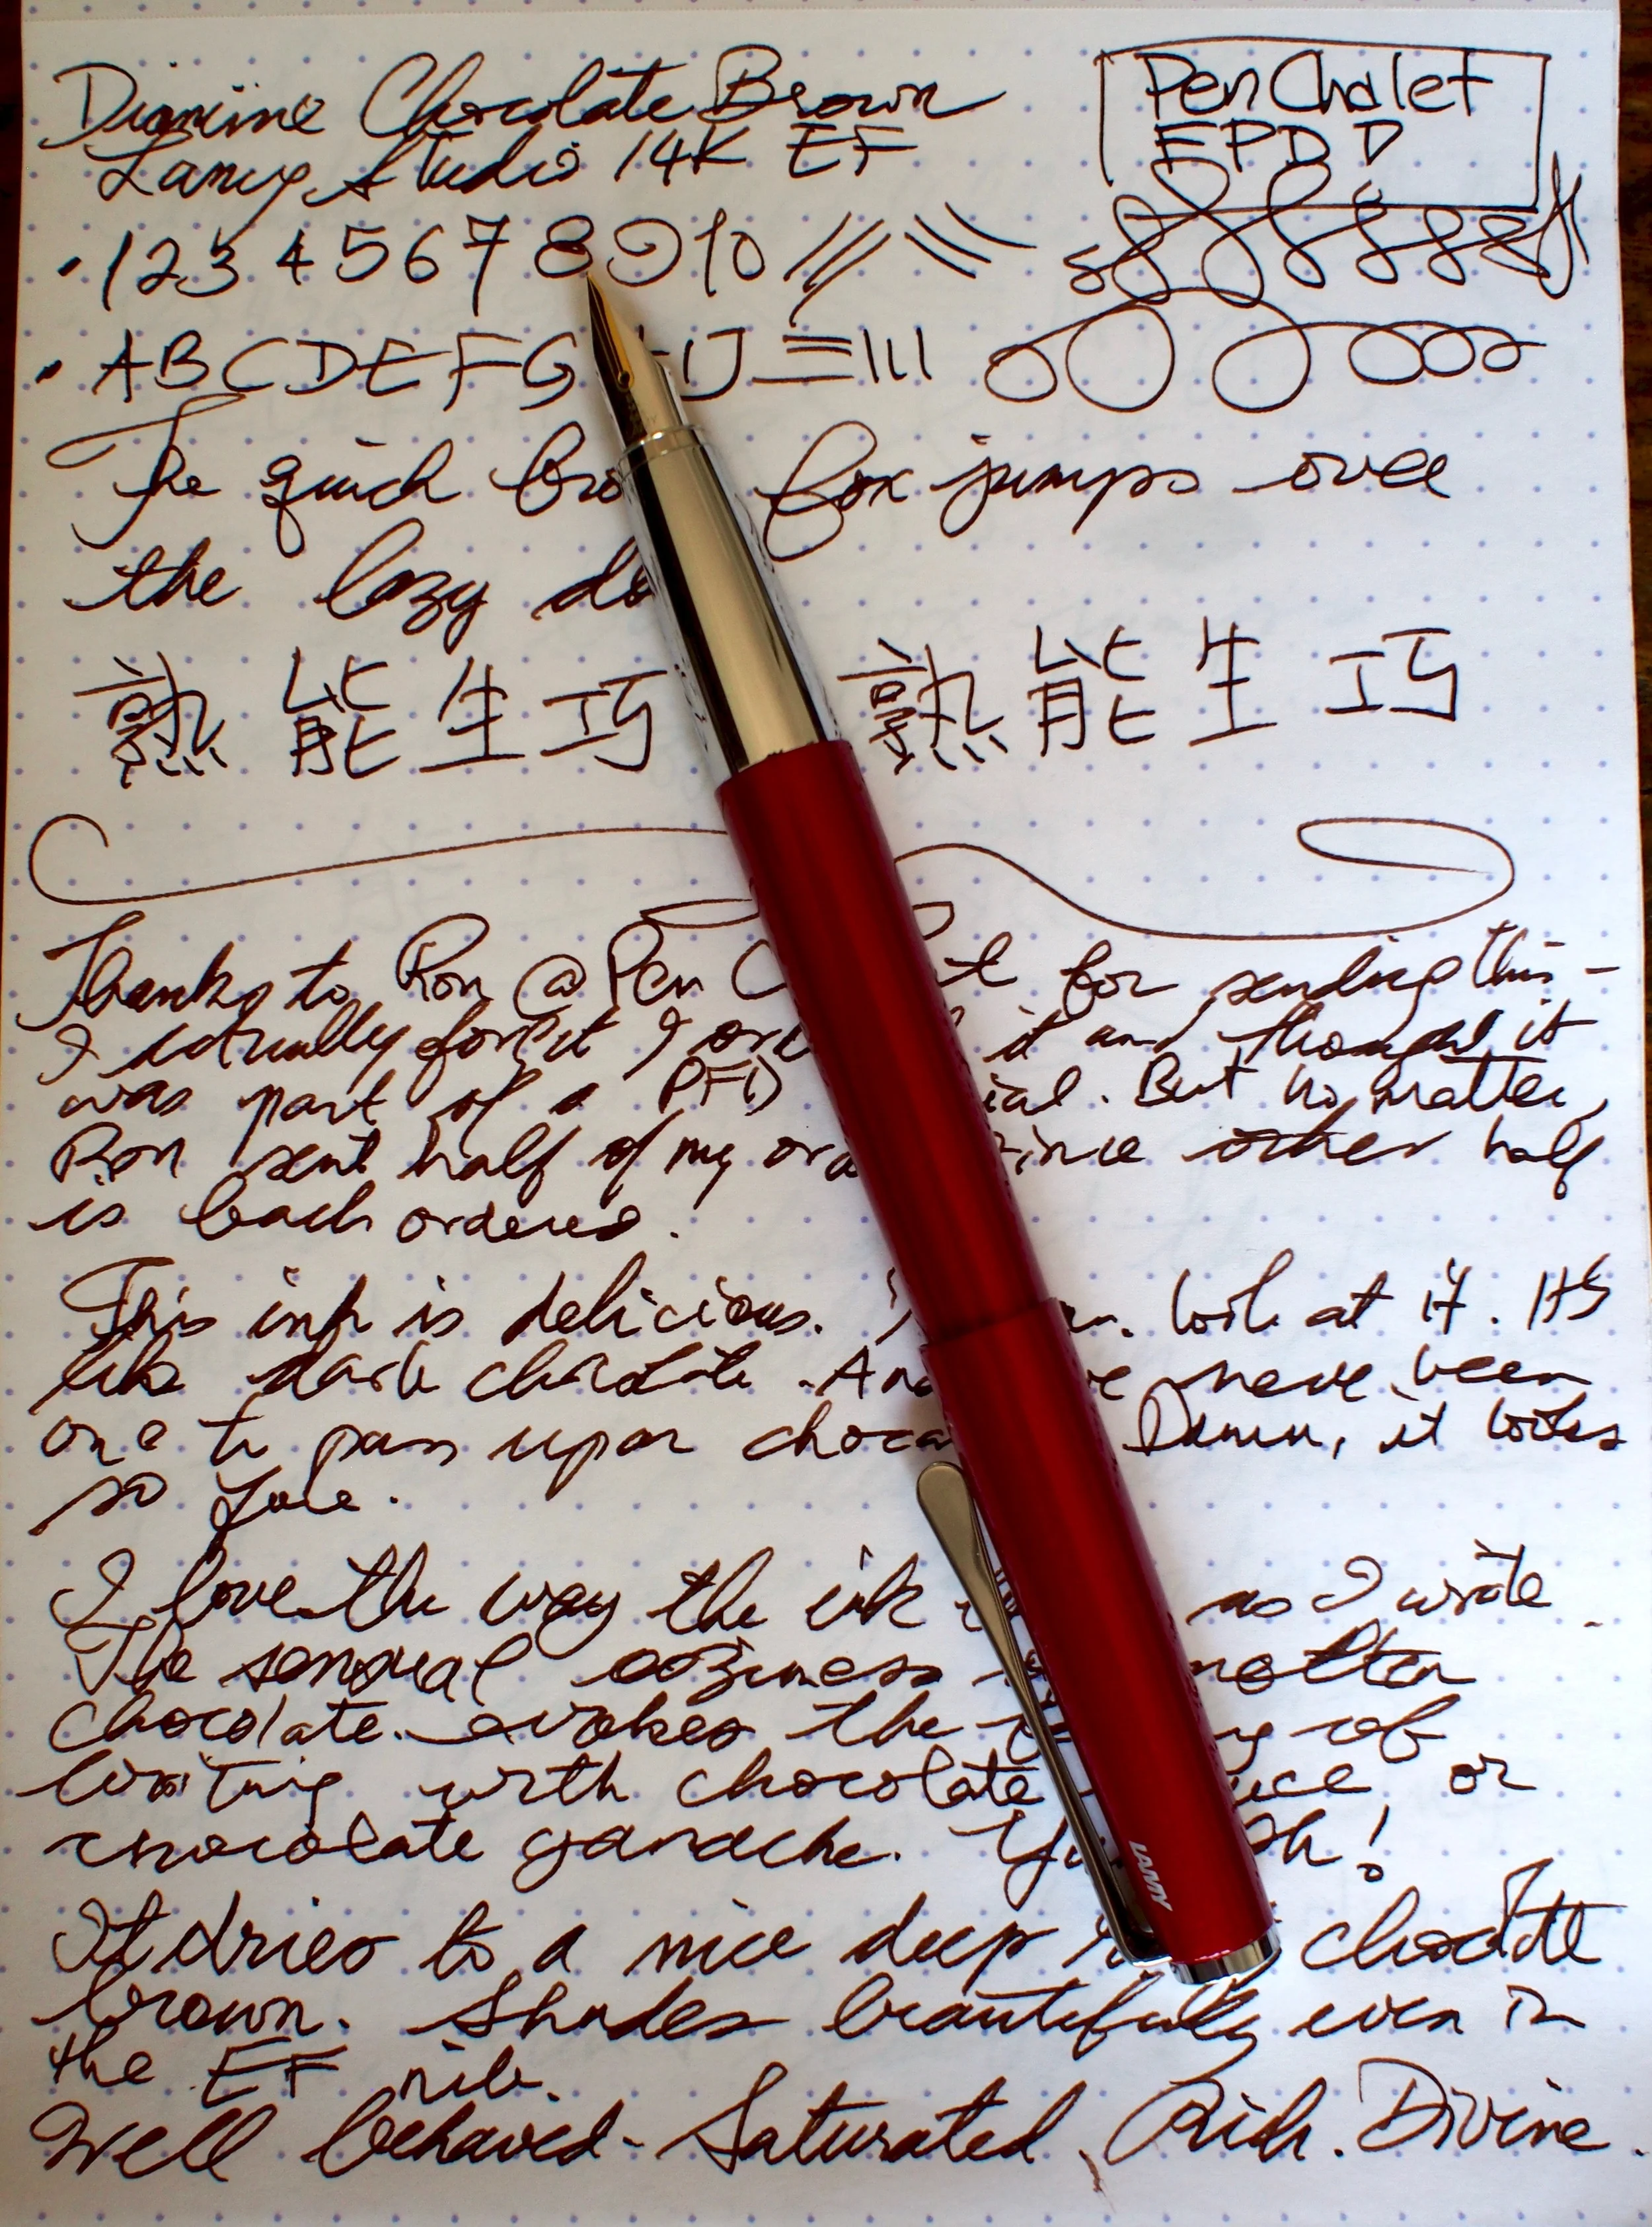 Diamine Chocolate Brown
Lamy Studio 14K EF
Pen Chalet
FPD
1 2 3 4 5 6 7 8 9 10
A B C D E F G I J
The quick bro fox jumps over
the lazy do
熟能生巧 熟能生巧
Thanks to Ron @ Pen C t for sending this -
I actually forgot I or it and thought it
was part of a PFD ial. But no matter,
Ron sent half of my or since other half
is back ordered.
This ink is delicious. look at it. It's
like dark chocolate. And have been
one to pass upon choco Damn, it looks
so
I love the way the ink as I wrote.
The sensual ooziness molten
chocolate evokes the of
writing with chocolate or
chocolate ganache. !
It dries to a nice deep chocolate
brown. Shades beautifully even in
the EF nib.
Well behaved - Saturated, Rich. Divine.
LAMY